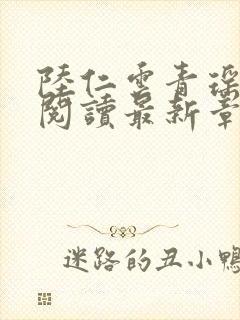 陸仁雲青瑤
閱讀最新章
迷路的丑小鴨